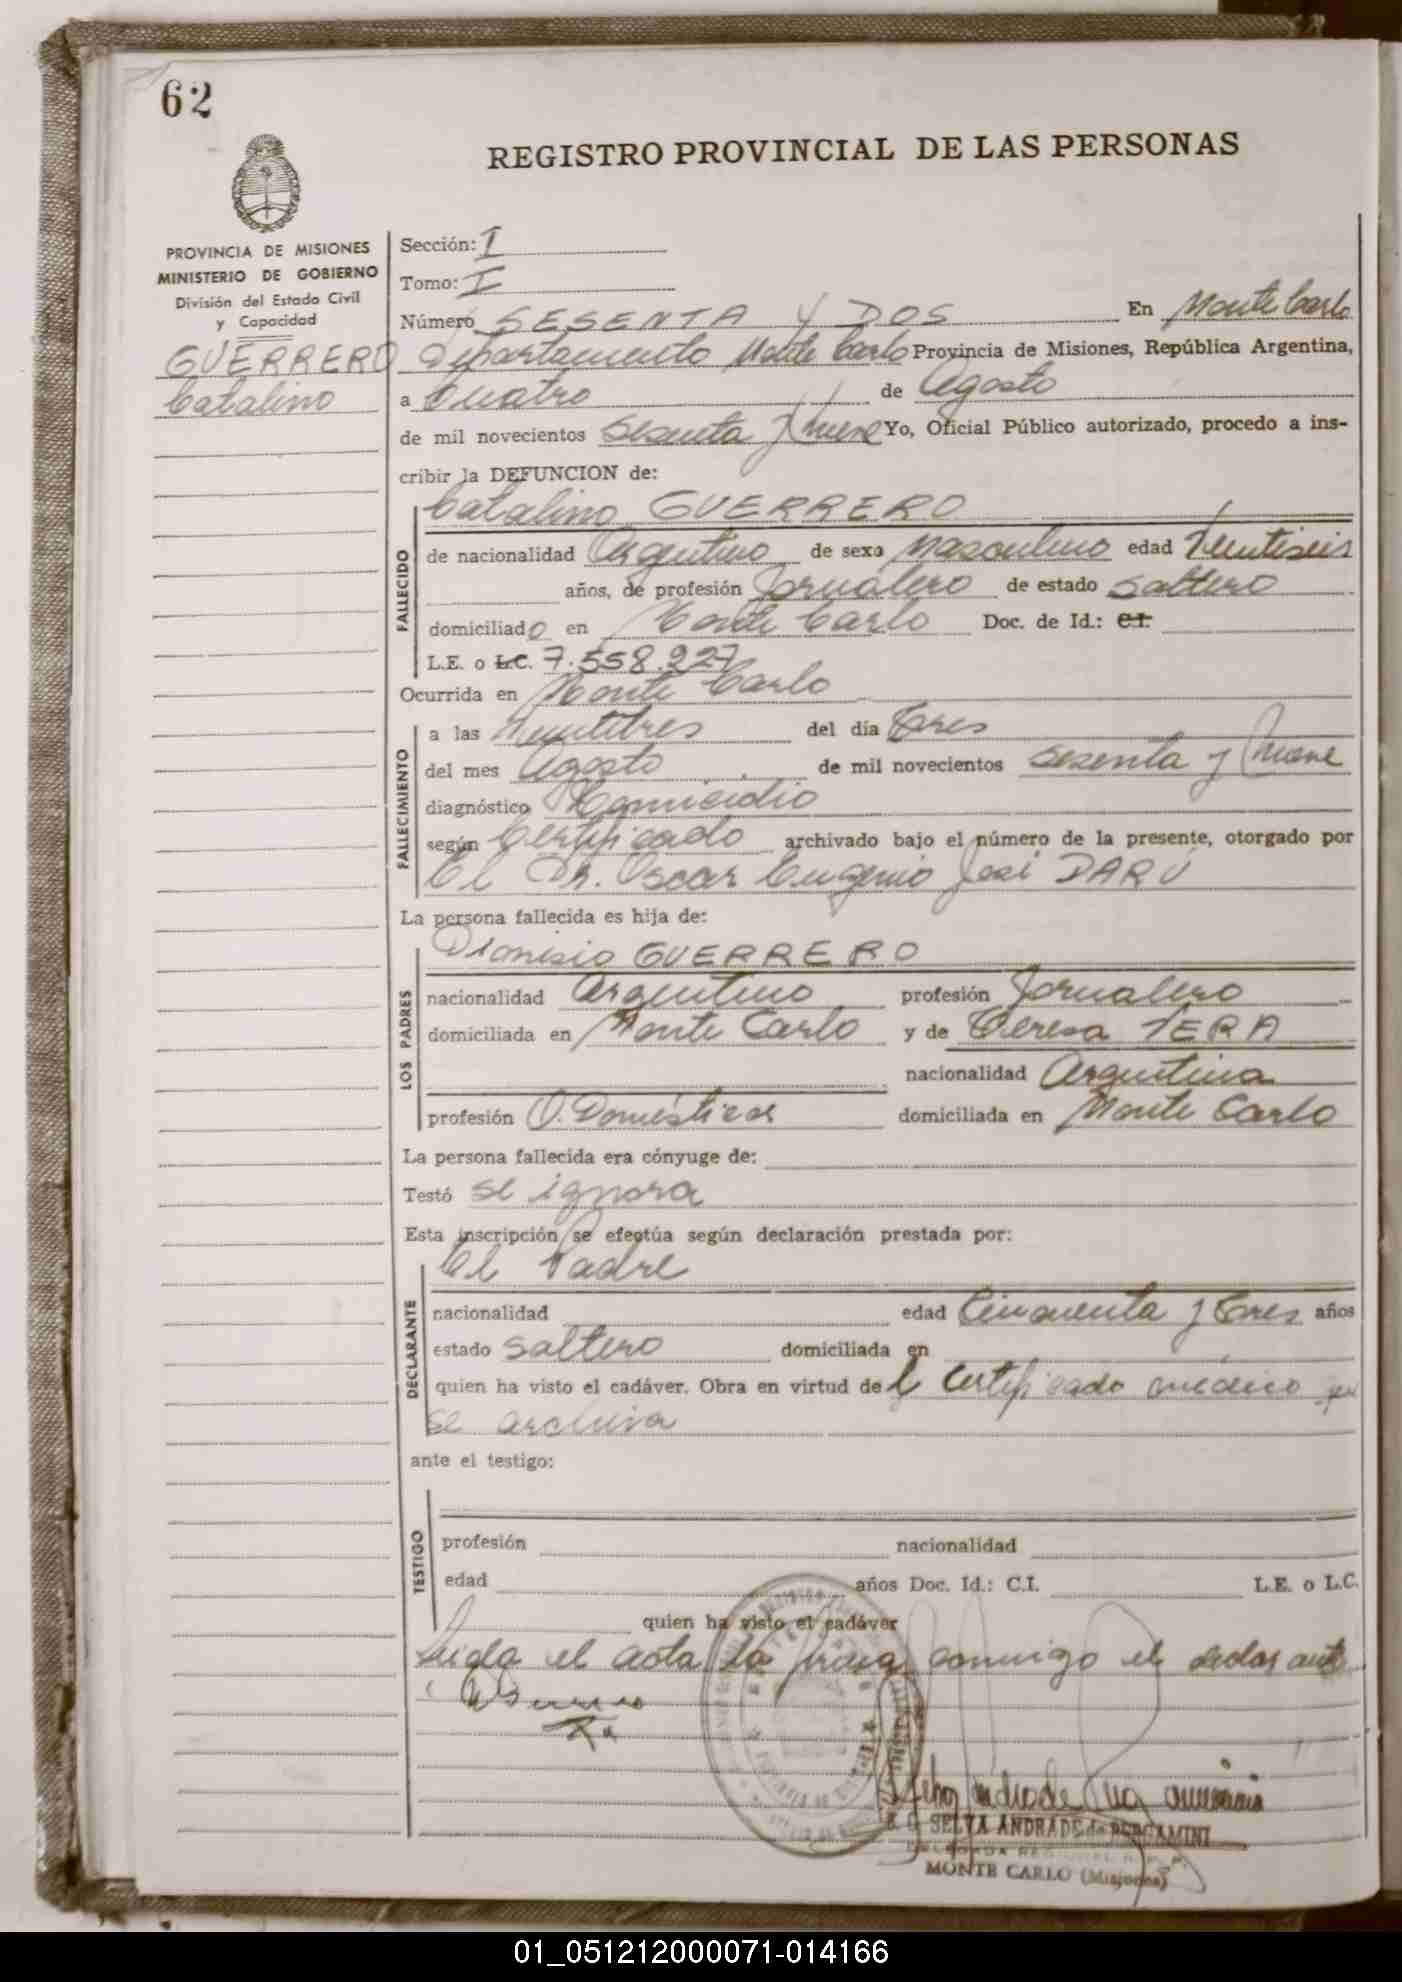 62
REGISTRO PROVINCIAL DE LAS PERSONAS
PROVINCIA DE MISIONES
MINISTERIO DE GOBIERNO
División del Estado Civil
y Capacidad
GUERRERO
Catalino
Sección: I
Tomo: I
Número SESENTA Y DOS En Monte Carlo
Departamento Monte Carlo Provincia de Misiones, República Argentina,
a Cuatro de Agosto
de mil novecientos Sesenta y Nueve Yo, Oficial Público autorizado, procedo a ins-
cribir la DEFUNCION de:
Catalino GUERRERO
FALLECIDO
de nacionalidad Argentino de sexo Masculino edad Veintiseis
años, de profesión Jornalero de estado Soltero
domiciliado en Monte Carlo Doc. de Id.: C.I.
L.E. o L.C. 7.558.227
Ocurrida en Monte Carlo
FALLECIMIENTO
a las Veintitres del día Tres
del mes Agosto de mil novecientos Sesenta y Nueve
diagnóstico Homicidio
según Certificado archivado bajo el número de la presente, otorgado por
El Dr. Oscar Eugenio José DARÚ
La persona fallecida es hija de:
Dionisio GUERRERO
LOS PADRES
nacionalidad Argentino profesión Jornalero
domiciliada en Monte Carlo y de Teresa VERA
nacionalidad Argentina
profesión Q. Domésticos domiciliada en Monte Carlo
La persona fallecida era cónyuge de:
Testó se ignora
Esta inscripción se efectúa según declaración prestada por:
El Padre
DECLARANTE
nacionalidad edad Cincuenta y Tres años
estado Soltero domiciliada en
quien ha visto el cadáver. Obra en virtud del Certificado médico que
se archiva
ante el testigo:
TESTIGO
profesión nacionalidad
edad años Doc. Id.: C.I. L.E. o L.C.
quien ha visto el cadáver
Leida el acta la firma conmigo el declarante
SELVA ANDRADE de BERGAMINI
DELEGADA REGIONAL R. P. P.
MONTE CARLO (Misiones)
01_051212000071-014166